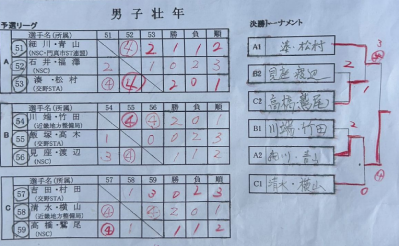 男子壮年
予選リーグ
A
選手名(所属) 51 52 53 勝 負 順
51 細川・青山 (NSC・門真市ST連盟) ④ 2 1 1 2
52 石井・福澤 (NSC) 2 1 0 2 3
53 湊・松村 (交野STA) ④ ④ 2 0 1
B
選手名(所属) 54 55 56 勝 負 順
54 川端・竹田 (近畿地方整備局) ④ ④ 2 0 1
55 飯塚・高木 (交野STA) 1 0 0 2 3
56 見座・渡辺 (NSC) 3 ④ 1 1 2
C
選手名(所属) 57 58 59 勝 負 順
57 吉田・村田 (交野STA) 1 3 0 2 3
58 清水・横山 (近畿地方整備局) ④ ④ 2 0 1
59 高橋・鷲尾 (NSC) ④ 1 1 1 2
決勝トーナメント
A1 湊・松村
B2 見座・渡辺
C2 高橋・鷲尾
B1 川端・竹田
A2 細川・青山
C1 清水・横山
3
2
1
2
0